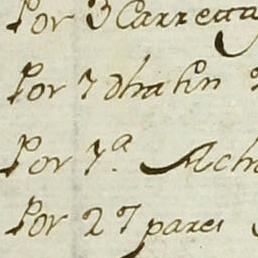 Por 3 Carretta
Por 7
Por 7ª Acha
Por 27 pares